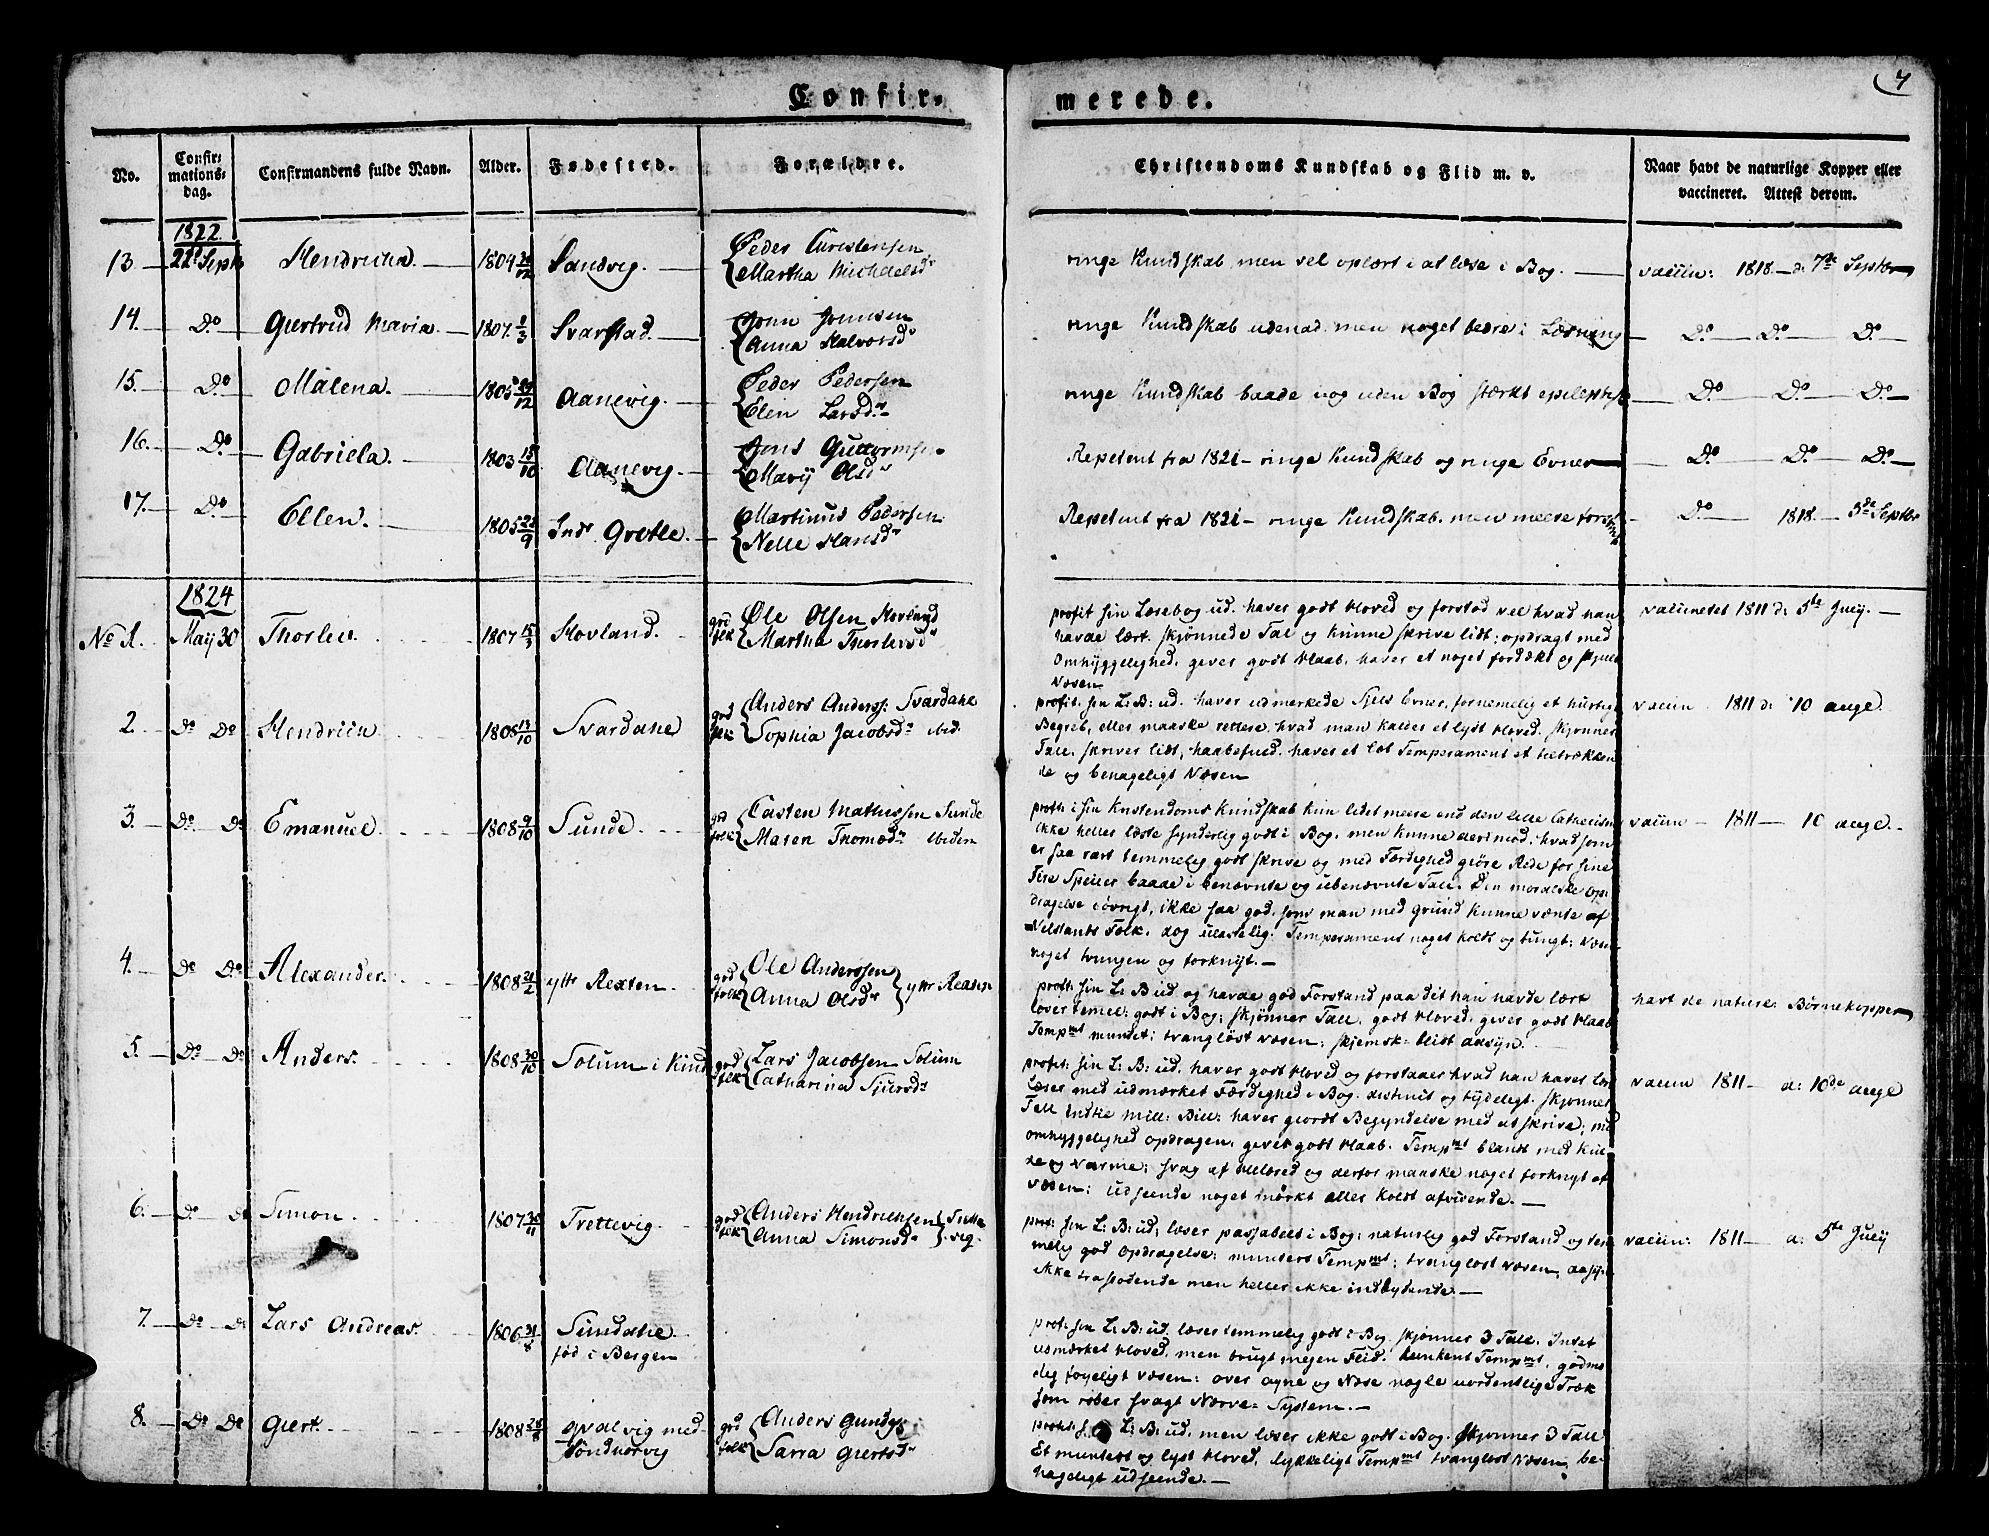 7
Confir-
merede.
No.
Confir-
mations-
dag.
Confirmandens fulde Navn.
Alder.
Fødested.
Forældre.
Christendoms Kundskab og Flid m. v.
Naar havt de naturlige Kopper eller
vaccineret. Attest derom.
1822
13 22de Septb Hendricha. 1804 Sandvig. Peder Christensen
Martha Michaelsdr
ringe Kundskab men vel oplært i at læse i Bog. vaccin: 1818 d: 7de Septbr
14. Do Giertrud Maria. 1807 1/3 Svarstad. John Johnsen
Anna Halvorsdr
ringe Kundskab udenad men noget bedre i Læsning Do Do Do
15. Do Malena. 1805 Aanevig. Peder Pedersen
Elen Larsdr
ringe Kundskab baade i og uden Bog stærkt epileptisk Do Do Do
16. Do Gabriela. 1803 15/10 Aanevig. Jens Guttormsen
Marij Olsdr
Repetent fra 1821 - ringe Kundskab og ringe Evner Do Do Do
17. Do Ellen. 1805 Indr Gretle. Martinus Pedersen
Nelle Hansdr
Repetent fra 1821 - ringe Kundskab. men meere Do 1818. 3de Septbr
1824
No 1. Maij 30 Thorlev. 1807 15/3 Hovland. grd folk Ole Olsen Hovland
Martha Thorlevsd
profit: sin Lærebog ud. haver godt Hoved og forstod vel hvad han
havde lært. skjønnede Tal og kunne skrive lidt; opdragt med
Omhyggelighed, giver godt Haab, haver et noget
Væsen
vaccineret 1811 d: 5te Julij.
2. Do Do Hendrich 1806 13/10 Svardahl grd folk Anders Anderss: Svardahl
Sophia Jacobsdr ibid.
profit. sin L: B: ud. haver udmerkede Sjels Evner, fornemelig et hurtig
Begreb, eller maaske rettere hvad man kalder et lyst Hoved. skjønner
Tall, skriver lidt, haabefuld, haver et let Temperament et tiltrækken
de og behageligt Væsen
vaccin 1811 d: 10 aug.
3. Do Do Emanuel. 1808 9/10 Sunde. grd folk Casten Mathissen Sunde
Maren Thomædr ibiden
proft: i sin Kristendoms Kundskab kun lidet meere end den lille Cathecism
ikke heller læste synderlig godt i Bog, men kunne derimod, hvad som
er saa rart temmelig godt skrive og med Færdighed giøre Rede for sine
Fire Speiier baade i benævnte og ubenævnte Tall. Den moralske Op
dragelse iøvrigt, ikke saa god, som man med grund kunne vænte af
Velstands Folk, dog ulastelig. Temperament noget koldt og tungt; Væsen
noget tvungen og forknyt.
vaccin - 1811 - 10 aug.
4. Do Do Alexander. 1808 21/2 yttr Rexten grd folk Ole Anderssen
Anna Olsdr yttr Rexten
proft: sin L: B ud. og havde god Forstand paa det han havde lært
læser temel: godt i Bog; skjønner Tall, godt Hoved, giver godt Haab
Tempmt muntert; tvangløst væsen; skjemsk: blidt aasyn.
havt de naturl: Børnekopper
5. Do Do Anders. 1808 30/10 Solum i Kind grd folk Lars Jacobsen Solum
Catharina Sjursdr
proft: sin L: B: ud. haver godt Hoved og forstaaer hvad han haver lært
Læser med udmærket Færdighed i Bog. distinct og tydeligt. skjønner
Tall indtil mill: Bill: haver giordt Begyndelse med at skrive; med
omhyggelighed opdragen, giver godt Haab. Tempmt blandt med Kul-
de og Varme; svag af Helbred og derfor maaske noget forknyt af
Væsen; udseende noget mørkt eller koldt afvisende.
vaccin 1811 - d: 10de aug
6. Do Do Simon 1807 30/11 Trettevig grd folk Anders Hendrichsen
Anna Simonsdr
proft: sin L: B: ud; læser passabelt i Bog; naturlig god Forstand og tem
melig god Opdragelse; munters Tempmt; tvangløst væsen, aasyn
ikke frastødende men heller ikke indbydende.
vaccin: 1811 - d: 5te Julij
7. Do Do Lars Andreas. 1806 31/8 Sundahl
fød i Bergen
proft: sin L: B: ud. læser temmelig godt i Bog. skjønner 3 Tall. Intet
udmærket Hoved, men brugt megen Flid. Tempmt, godmo
dig føyeligt væsen; over øyne og Næse nogle uordentlige Træk
som røber svagt Nerve-System.
8. Do Do Giert. 1808 28/8 Qvalvig med
Sønduorvig grd folk Anders
Sarra Giertsdr
proft: sin L: B: ud, men læser ikke godt i Bog. skjønner 3 Tall
Et muntert og lyst Hoved, lykkeligt Tempmt tvangløst Væsen, be-
hageligt udseende.